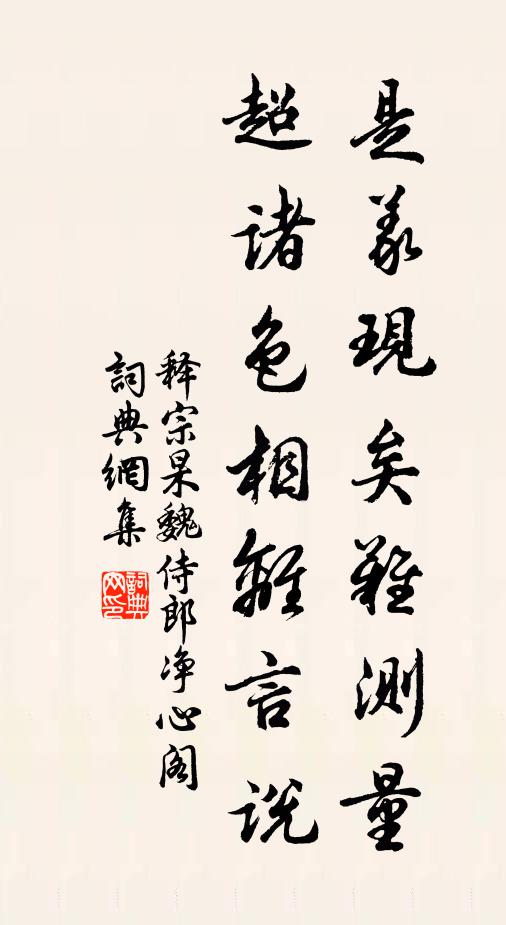 是義現矣難測量
超諸色相離言說
释宗杲魏侍郎净心阁
詞典網集
詞典网印